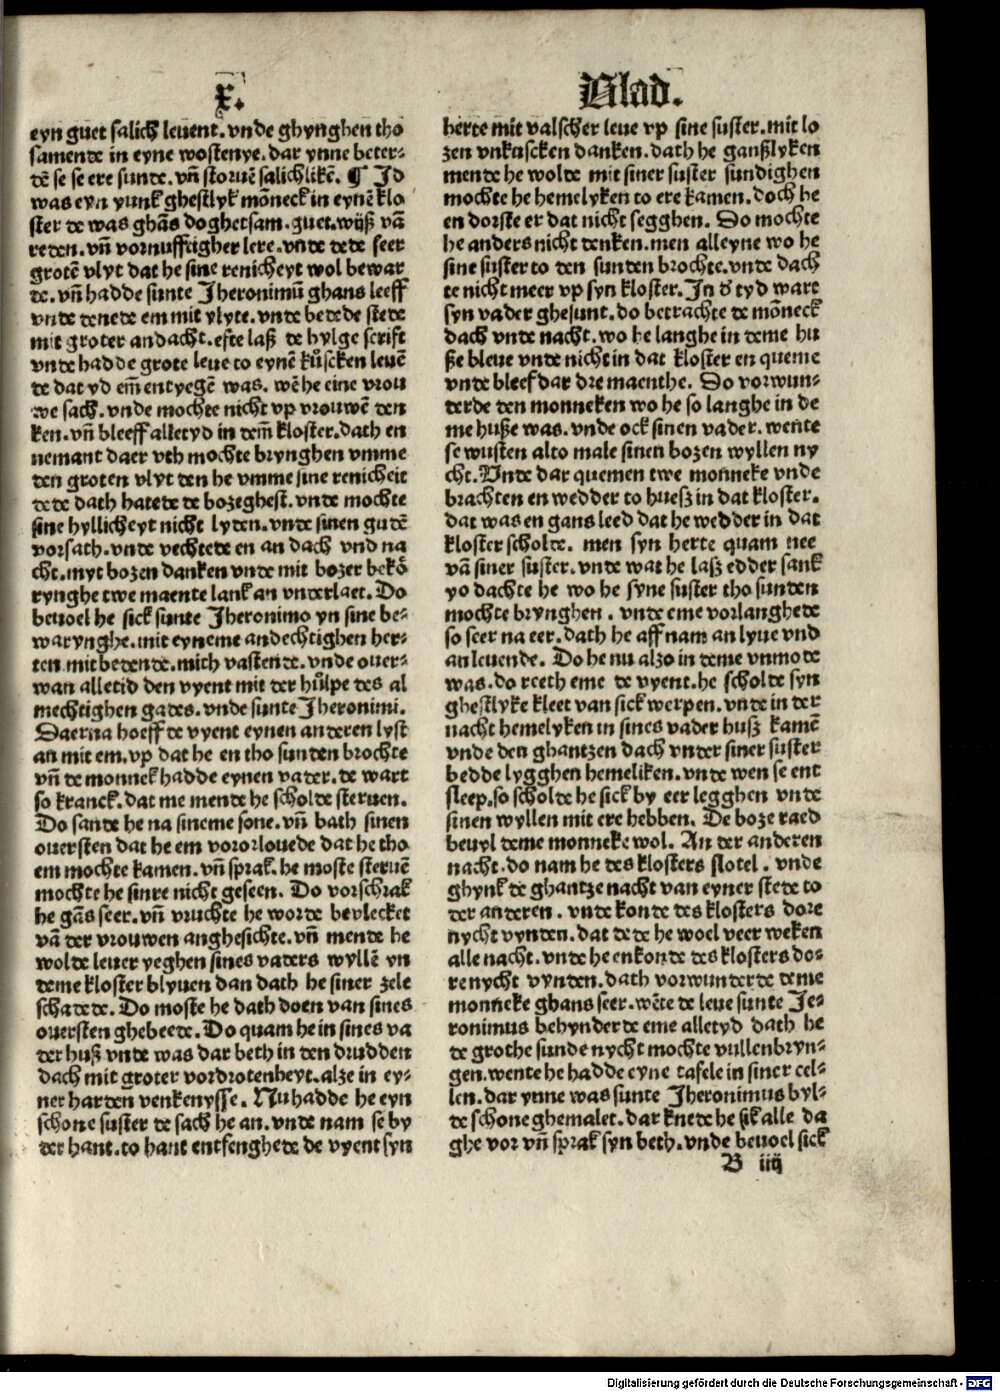 x.
eyn guet salich leuent. vnde ghynghen tho
samende in eyne wostenye. dar ynne beter⸗
dē se se ere sunde. vn̄ storuē salichlikē. ¶ Id
was eyn yunk ghestlyk mōneck in eynē klo
ster de was ghās doghetsam. guet. wijß vā
reden. vn̄ vornufftigher lere. vnde dede seer
grotē vlyt dat he sine renicheyt wol bewar
de. vn̄ hadde sunte Iheronimū ghans leeff
vnde denede em mit vlyte. vnde bedede stede
mit groter andacht. efte laß de hylge scrift
vnde hadde grote leue to eynē kuͤscken leuē
de dat yd em̄ entyegē was. wē he eine vrou
we sach. vnde mochte nicht vp vrouwē den
ken. vn̄ bleeff alletyd in dem̄ kloster. dath en
nemant daer vth mochte brynghen vmme
den groten vlyt den he vmme sine renicheit
dede dath hatede de bozeghest. vnde mochte
sine hyllicheyt nicht lyden. vnde sinen gudē
vorsath. vnde vechtede en an dach vnd na
cht. myt bozen danken vnde mit bozer bekō
rynghe twe maente lank an vnderlaet. Do
beuoel he sick sunte Iheronimo yn sine be⸗
warynghe. mit eyneme andechtighen her⸗
ten mit bedende. mich vastende. vnde ouer⸗
wan alletid den vyent mit der huͤlpe des al
mechtighen gades. vnde sunte Iheronimi.
Daerna hoeff de vyent eynen anderen lyst
an mit em. vp dat he en tho sunden brochte
vn̄ de monnek hadde eynen vader. de wart
so kranck. dat me mende he scholde steruen.
Do sande he na sineme sone. vn̄ bath sinen
ouersten dat he em vororlouede dat he tho
em mochte kamen. vn̄ sprak. he moste steruē
mochte he sinre nicht geseen. Do vorschrak
he gās seer. vn̄ vruchte he worde bevlecket
vā der vrouwen anghesichte. vn̄ mende he
wolde leuer yeghen sines vaders wyllē yn
deme kloster blyuen dan dath he siner zele
schadede. Do moste he dath doen van sines
ouersten ghebeede. Do quam he in sines va
der huß vnde was dar beth in den drudden
dach mit groter vordrotenheyt. alze in ey⸗
ner harden venkenysse. Nu hadde he eyn
schone suster de sach he an. vnde nam se by
der hant. to hant entfenghede de vyent syn
Blad.
herte mit valscher leue vp sine suster. mit lo
zen vnkuscken danken. dath he ganßlyken
mende he wolde mit siner suster sundighen
mochte he hemelyken to ere kamen. doch he
en dorste er dat nicht segghen. Do mochte
he anders nicht denken. men alleyne wo he
sine suster to den sunden brochte. vnde dach
te nicht meer vp syn kloster. In d̓ tyd wart
syn vader ghesunt. do betrachte de mōneck
dach vnde nacht. wo he langhe in deme hu
ße bleue vnde nicht in dat kloster en queme
vnde bleef dar dre maenthe. Do vorwun⸗
derde den monneken wo he so langhe in de
me huße was. vnde ock sinen vader. wente
se wusten alto male sinen bozen wyllen ny
cht. Vnde dar quemen twe monneke vnde
brachten en wedder to huesz in dat kloster.
dat was en gans leed dat he wedder in dat
kloster scholde. men syn herte quam nee
vā siner suster. vnde wat he lasz edder sank
yo dachte he wo he syne suster tho sunden
mochte brynghen. vnde eme vorlanghede
so seer na eer. dath he aff nam an lyue vnd
an leuende. Do he nu alzo in deme vnmode
was. do reeth eme de vyent. he scholde syn
ghestlyke kleet van sick werpen. vnde in der
nacht hemelyken in sines vader husz kamē
vnde den ghantzen dach vnder siner suster
bedde lygghen hemeliken. vnde wen se ent
sleep. so scholde he sick by eer legghen vnde
sinen wyllen mit ere hebben. De boze raed
beuyl deme monneke wol. An der anderen
nacht. do nam he des klosters slotel. vnde
ghynk de ghantze nacht van eyner stede to
der anderen. vnde konde des klosters dore
nycht vynden. dat dede he woel veer weken
alle nacht. vnde he enkonde des klosters do⸗
re nycht vynden. dath vorwunderde deme
monneke ghans seer. wēte de leue sunte Je⸗
ronimus behynderde eme alletyd dath he
de grothe sunde nycht mochte vullenbryn⸗
gen. wente he hadde eyne tafele in siner cel⸗
len. dar ynne was sunte Iheronimus byl⸗
de schone ghemalet. dar knede he sik alle da
ghe vor vn̄ sprak syn beth. vnde beuoel sick
B iiij
Digitalisierung gefördert durch die Deutsche Forschungsgemeinschaft - DFG